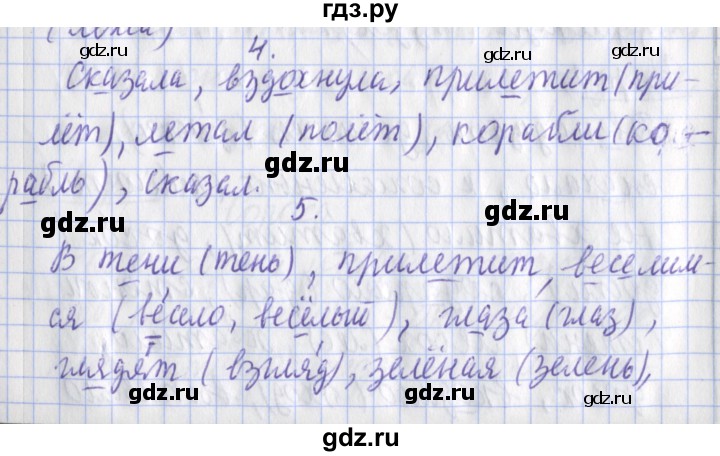 гдз.ру
4.
Сказала, вздохнула, прилетит (при-
лёт), летал (полёт), корабли (ко-
рабль), сказал.
5.
В тени (тень), прилетит, веселим-
ся (весело, весёлый), глаза (глаз),
глядят (взгляд), зелёная (зелень),
gdz.ru
gdz.ru
gdz.ru
gdz.ru
gdz.ru
gdz.ru
gdz.ru
gdz.ru
gdz.ru
gdz.ru
gdz.ru